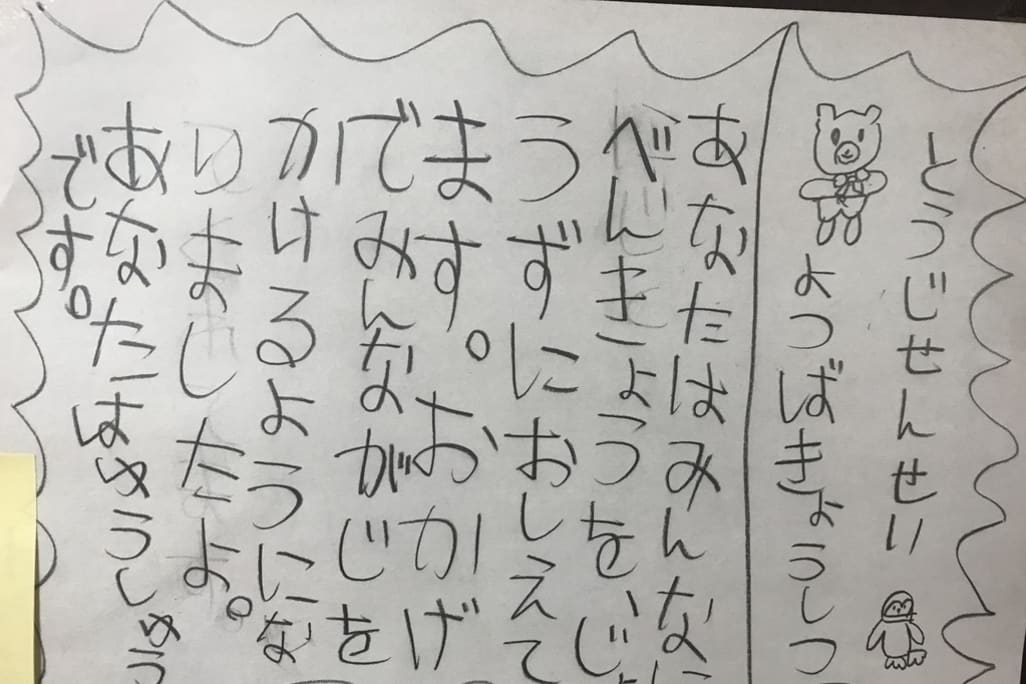 とうじせんせい
よつばきょうしつ
あなたはみんなに
べんきょうをじょ
うずにおしえて
ます。おかげ
でみんながじを
かけるようにな
りましたよ。
あなたはゆうしゅう
です。